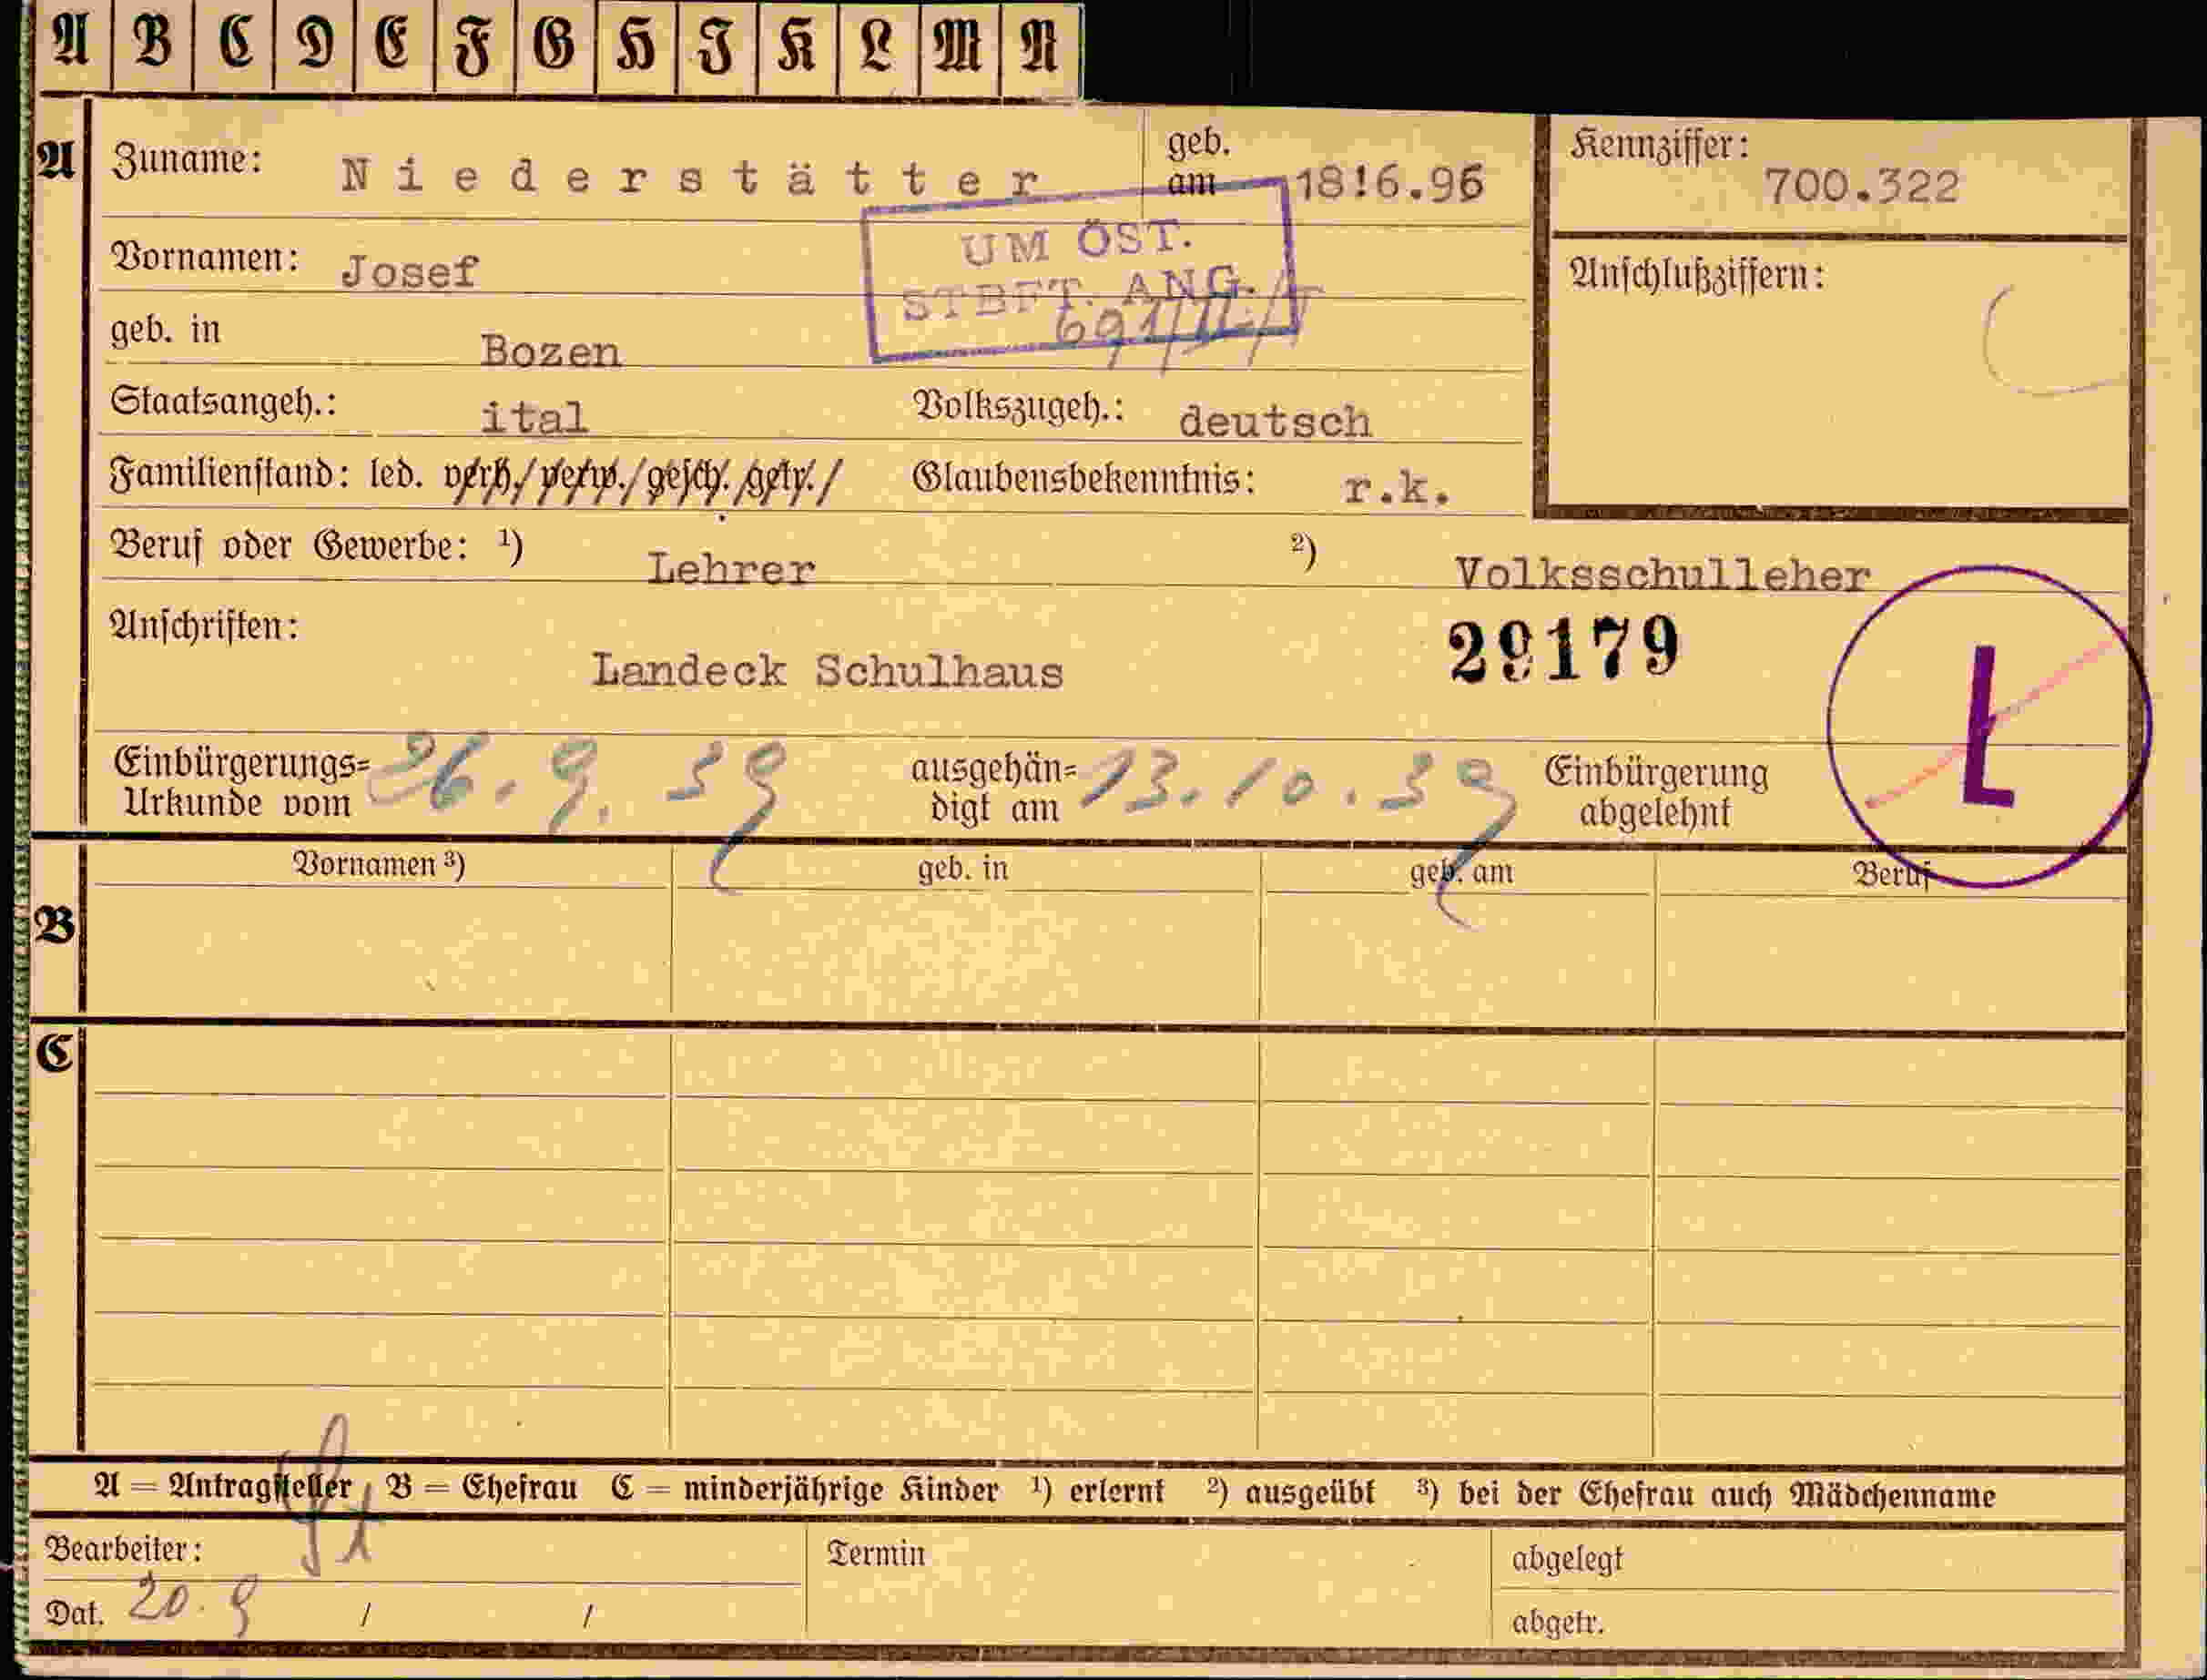 A B C D E F G H I K L M N
A Zuname: Niederstätter geb. am 18!6.96 Kennziffer: 700.322
UM ÖST.
STBFT. ANG.
Vornamen: Josef Anschlußziffern:
geb. in Bozen
Staatsangeh.: ital Volkszugeh.: deutsch
Familienstand: led. verh./verw./gesch./getr./ Glaubensbekenntnis: r.k.
Beruf oder Gewerbe: ¹) Lehrer ²) Volksschulleher
Anschriften: 29179
Landeck Schulhaus
L
Einbürgerungs= 26.9.39 ausgehän= 13.10.39 Einbürgerung
Urkunde vom digt am abgelehnt
Vornamen ³) geb. in geb. am Beruf
B
C
A = Antragsteller, B = Ehefrau C = minderjährige Kinder ¹) erlernt ²) ausgeübt ³) bei der Ehefrau auch Mädchenname
Bearbeiter: Termin abgelegt
Dat. 20.9 / / abgetr.